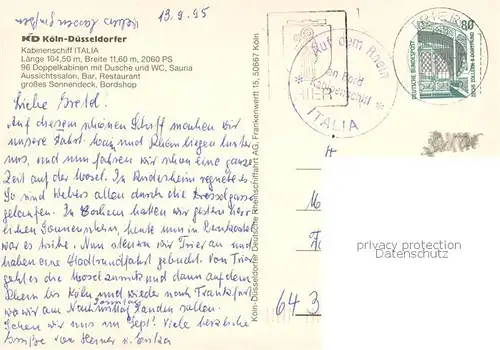 13.9.95
KD Köln-Düsseldorfer
Kabinenschiff ITALIA
Länge 104,50 m, Breite 11,60 m, 2060 PS
96 Doppelkabinen mit Dusche und WC, Sauna
Aussichtssalon, Bar, Restaurant
großes Sonnendeck, Bordshop
Liebe
Auf diesem schönen Schiff machen wir
unsere Fahrt. Main und Rhein liegen hinter
uns, und nun fahren wir schon eine ganze
Zeit auf der Mosel. In Rüdesheim regnete es.
So sind Webers allein durch die Drosselgasse
gelaufen. In Cochem hatten wir gestern herr-
lichen Sonnenschein, heute nun in Bernkastel
war es trübe. Nun steuern wir Trier an und
haben eine Stadtrundfahrt gebucht. Von Trier
geht es die Mosel zurück und dann auf dem
Rhein bis Köln und wieder nach Frankfurt
wo wir am Sonntag Nachmittag landen sollen.
wir uns im Sept! Viele herzliche
Grüße von Heiner u.
Köln-Düsseldorfer Deutsche Rheinschiffahrt AG, Frankenwerft 15, 50667 Köln
Auf dem Rhein
an Bord
Kabinenschiff
ITALIA
TRIER
80
DEUTSCHE BUNDESPOST
ZECHE ZOLLERN II DORTMUND
64 3
privacy protection
Datenschutz